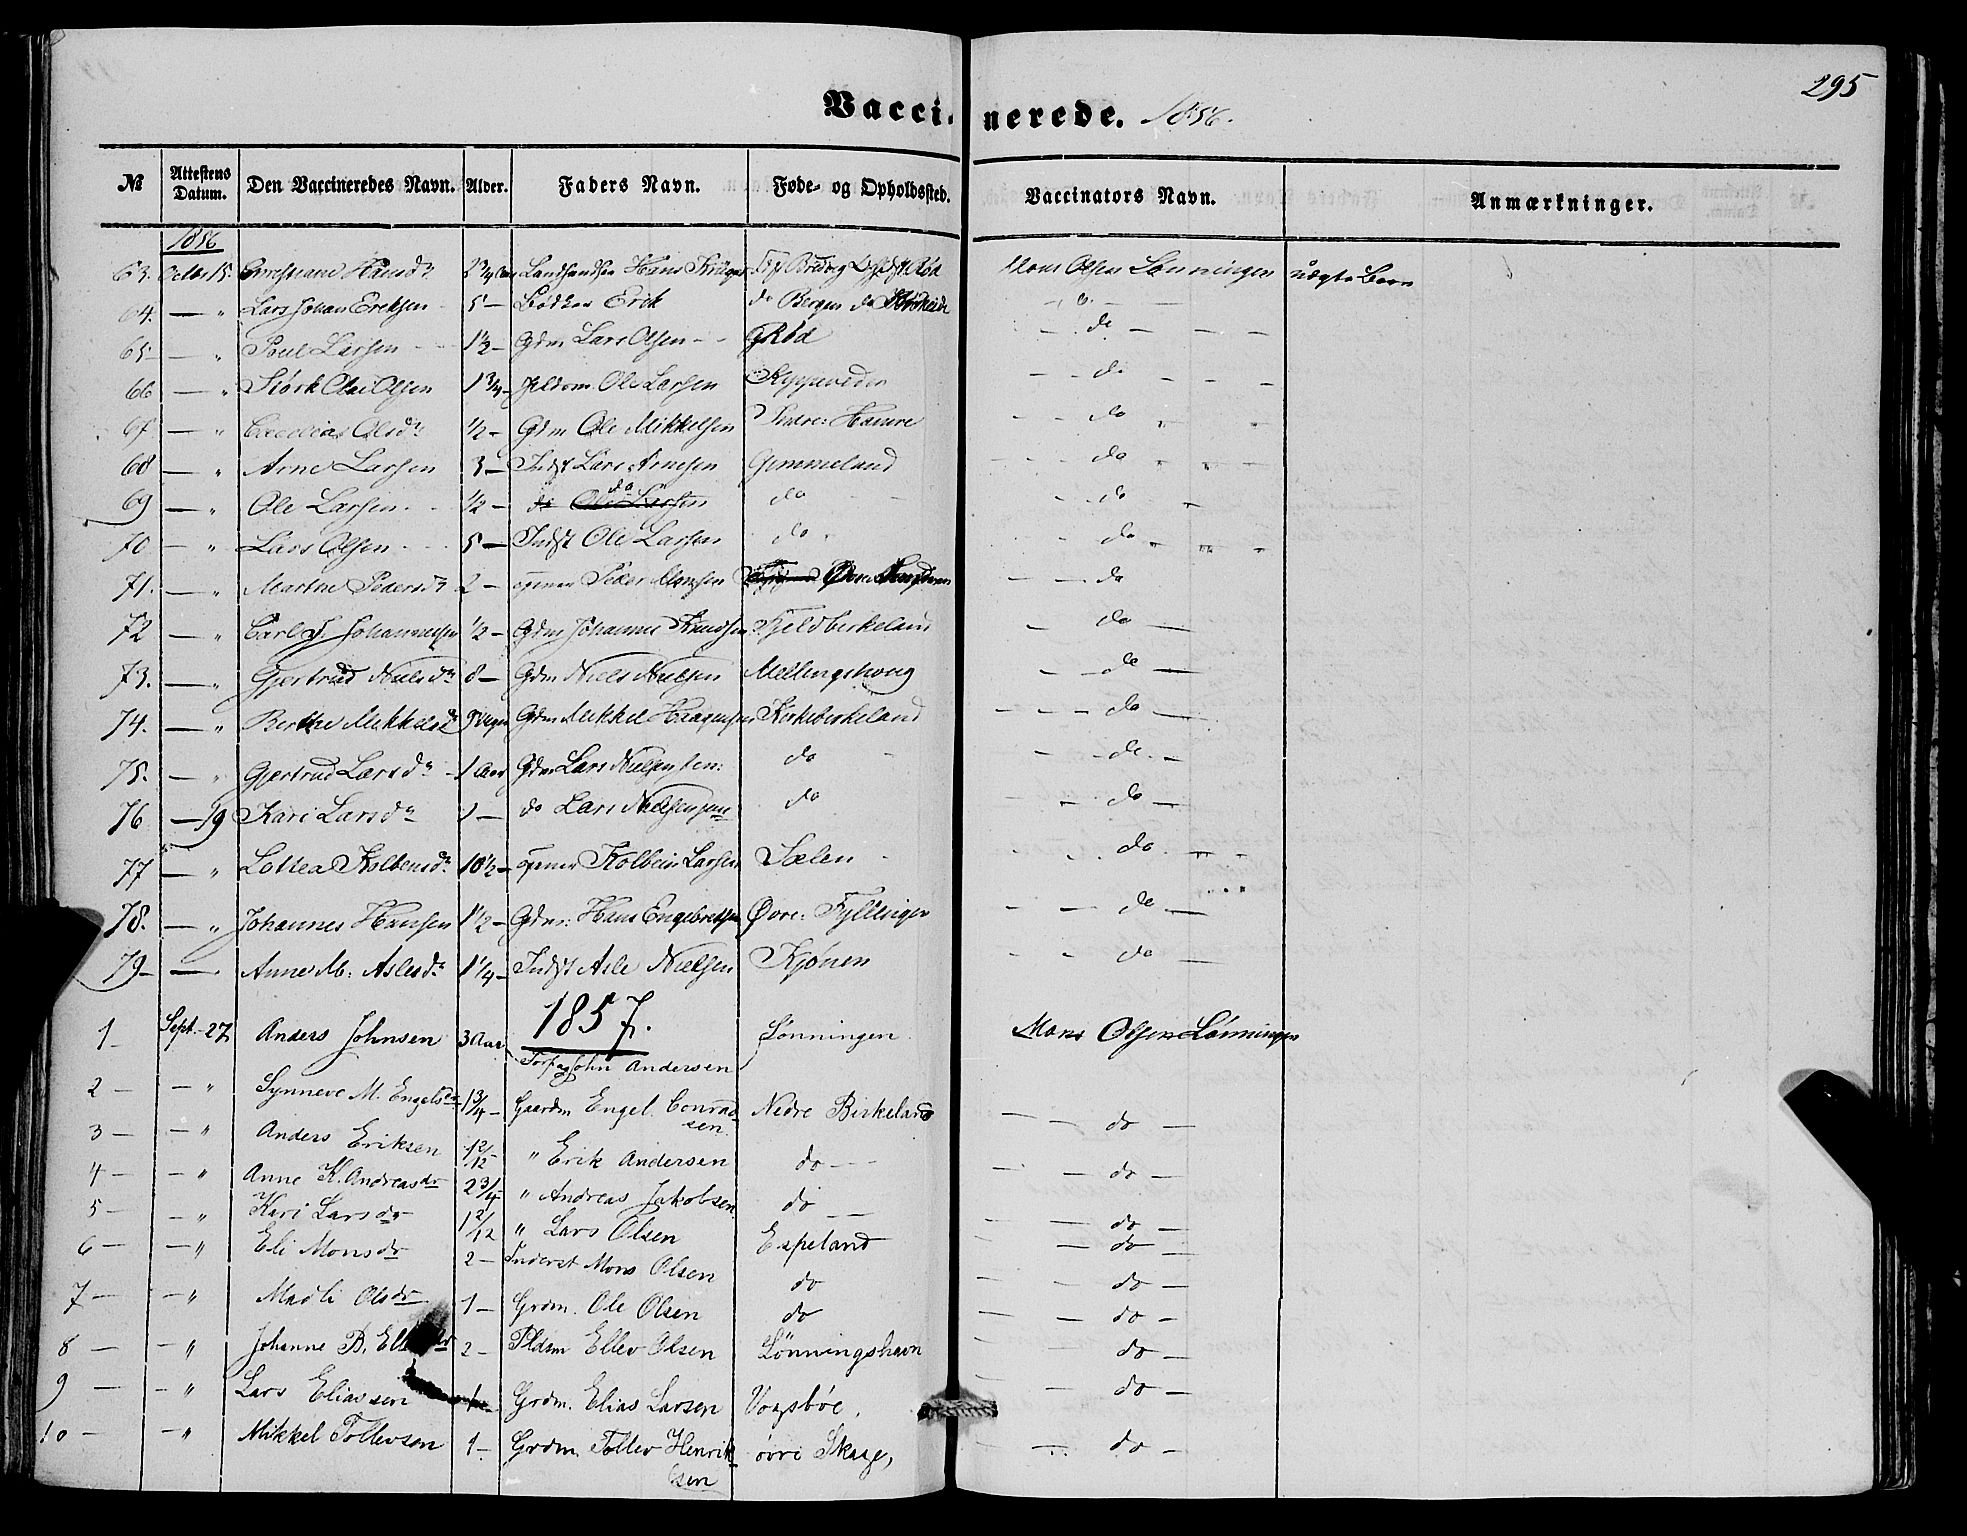 295
Vaccinerede. 1856.
№ Attestens Datum. Den Vaccineredes Navn. Alder. Faders Navn. Føde- og Opholdssted. Vaccinators Navn. Anmærkninger.
1856
63. Octbr 15. Hansdr 2 3/4 Aar Landhandler Hans Krüger Mons Olsen Lønningen uægte Barn
64. — " Lars Johan Eriksen 5 — Bødker Erik do Bergen do do
65 — " Poul Larsen 1 1/2 — Gdm Lars Olsen Rød — do —
66 — " Størk Olai Olsen 1 3/4 — Pldsm. Ole Larsen — do —
67 — " Olsdr 1/2 — Gdm Ole Mikkelsen Indre: Hamre — do
68 — " Arne Larsen 3 — Indst Lars Arnesen Gimmeland — do
69 — " Ole Larsen 1/2 — do do do — do
70 — " Lars Olsen 5 — Indst Ole Larsen do — do
71. — " Marthe Pedersdr 2 — Peder Monsen Øvre — do
72 — " Carl J. Johannesen 1/2 — Gdm Johannes Knudsen Fjeldbirkeland — do —
73. — " Gjertrud Nielsdr 8 — Gdm Niels Nielsen Mellingshoug — do —
74. — " Berthe Mikkelsdr Uger Gdm Mikkel Haagensen Kirkebirkeland — do —
75. — " Gjertrud Larsdr 1 Aar Gdm Lars Nielsen sen: do — do —
76 — 19 Kari Larsdr 1 — do Lars Nielsen jun do — do —
77 — " Lottea Kolbensdr 10 1/2 — Kolbein Larsen Sælen — do
78. — " Johannes Hansen 1 1/2 — Gdm: Hans Engebretsen Øvre: Fyllingen — do —
79 — — Anne M: Aslesdr 1 1/4 — Indst Asle Nielsen Kjønen — do —
1857.
1 — Sept. 27 Anders Johnsen 3 Aar Torp John Andersen Lønningen Mons Olsen Lønningen
2 — — " Synneve M. Engelsdr 1 3/4 — Gaardm Engel Conradsen Nedre Birkeland — do —
3 — — " Anders Eriksen 1 2/12 — " Erik Andersen do — do —
4 — — " Anne K. Andreasdr 2 3/4 — " Andreas Jakobsen do — do —
5 — — " Kari Larsdr 1 2/12 " Lars Olsen Espeland — do —
6 — — " Eli Monsdr 2 — Inderst Mons Olsen do — do —
7 — — " Madli Olsdr 1 — Grdm. Ole Olsen do — do —
8 — — " Johanne B. 2 — Pldsm Ellev Olsen Lønningshavn — do —
9 — — " Lars Eliassen 1 — Grdm. Elias Larsen Vogsbøe — do —
10 — — " Mikkel Tollevsen 1 — Grdm Tollev Henriksen øvre Skage, — do —